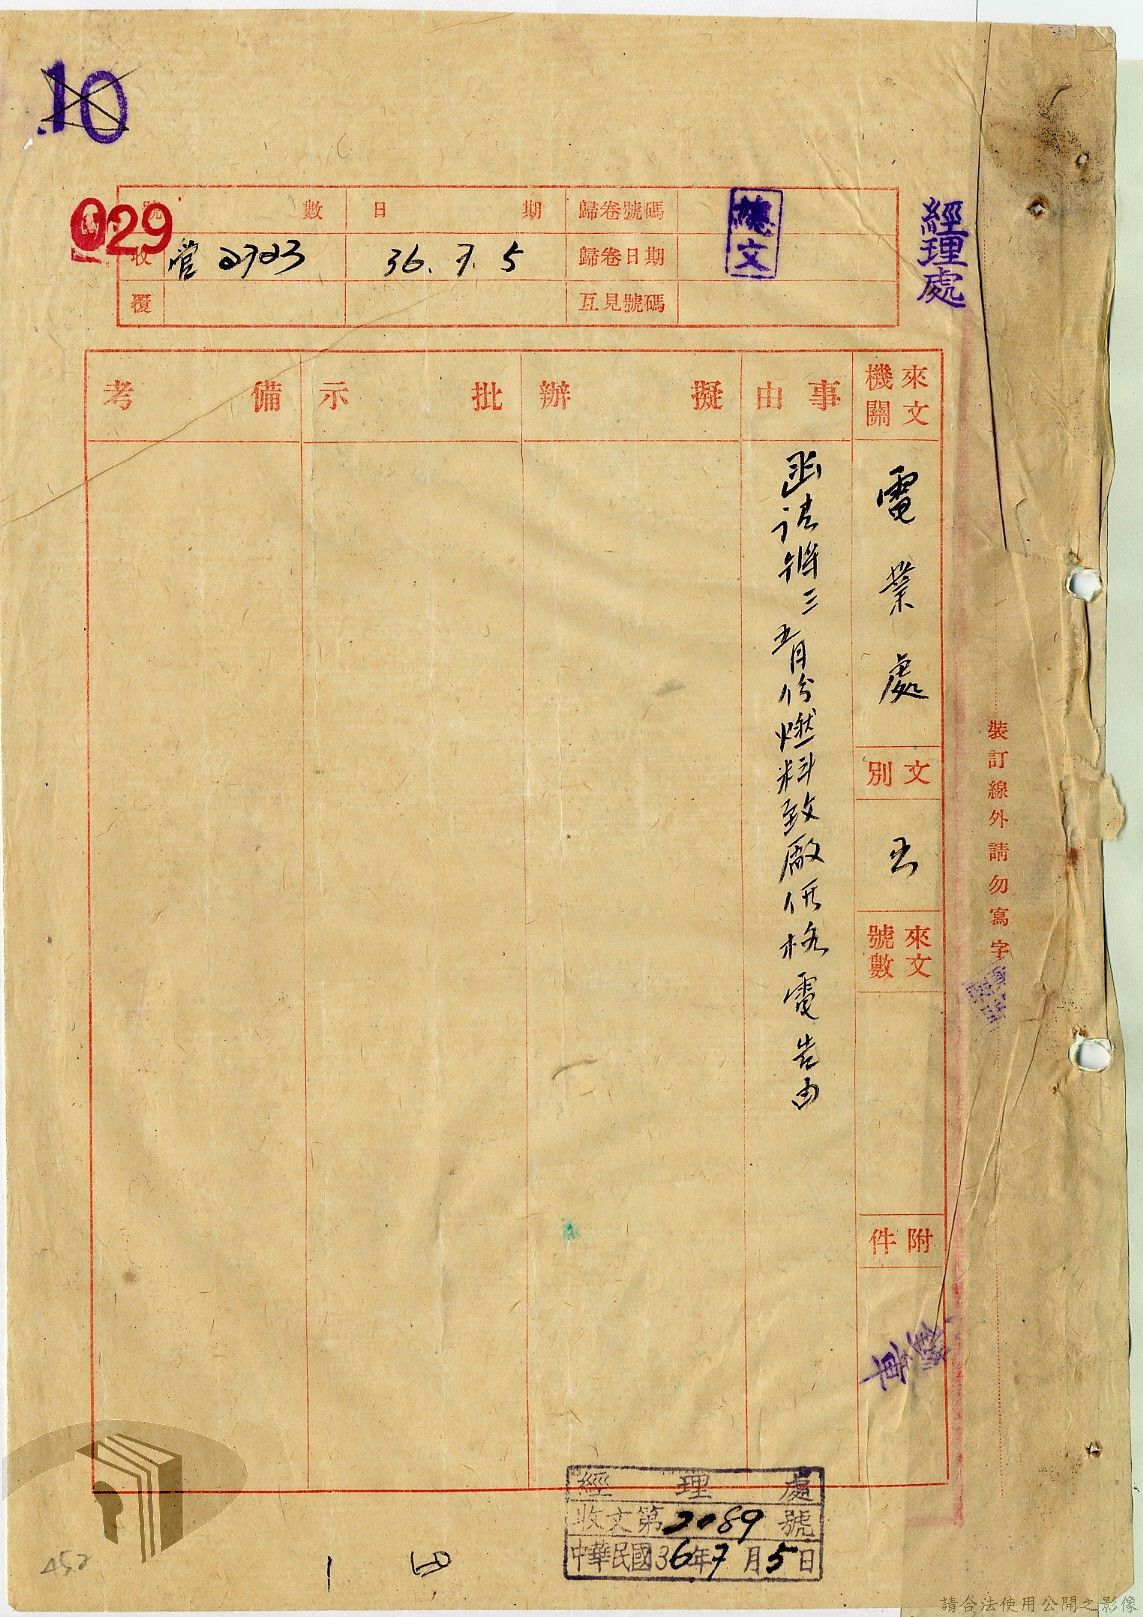 10
029
號數
日期
歸卷號碼
收
管2723
36.7.5
歸卷日期
覆
互見號碼
總文
經理處
來文機關
電業處
文別
來文號數
附件
事由
函請將三五月份燃料到廠價格電告由
擬辦
批示
備考
裝訂線外請勿寫字
經理處
收文第2089號
中華民國36年7月5日
請合法使用公開之影像